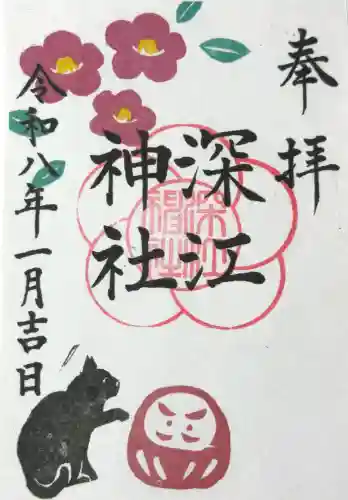 奉拝
深江
神社
令和八年一月吉日
深江
神社